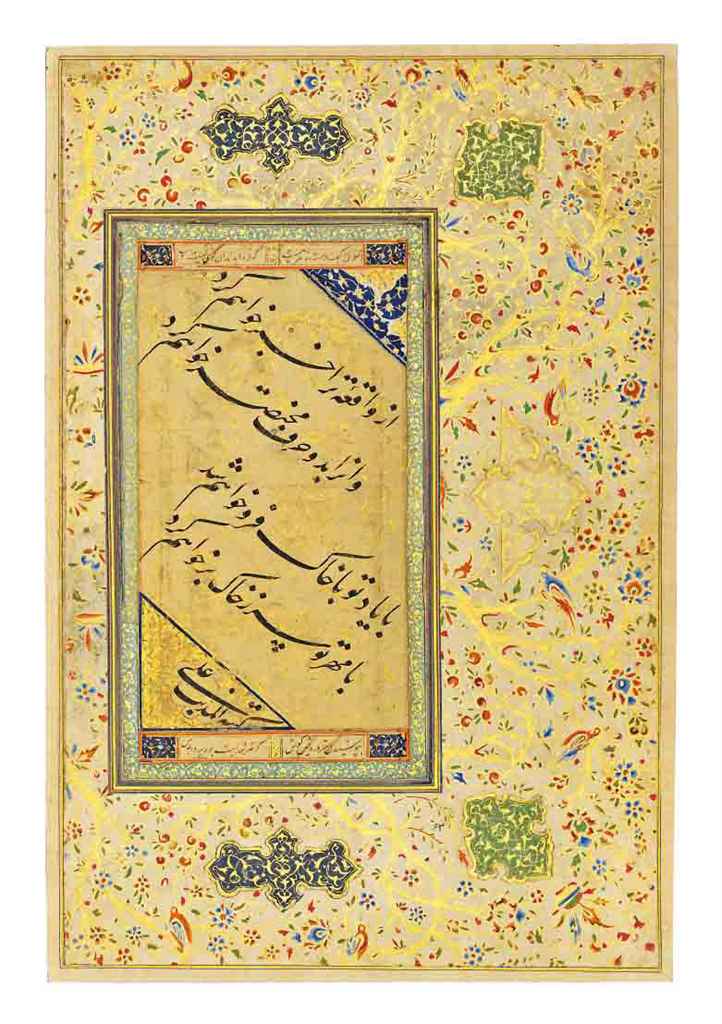 از واقعه ترا خبر خواهم کرد
وانرا بدو حرف مختصر خواهم کرد
با یاد تو با خاک فرو خواهم شد
با مهر تو سر ز خاک بر خواهم کرد
کتبه المذنب علی